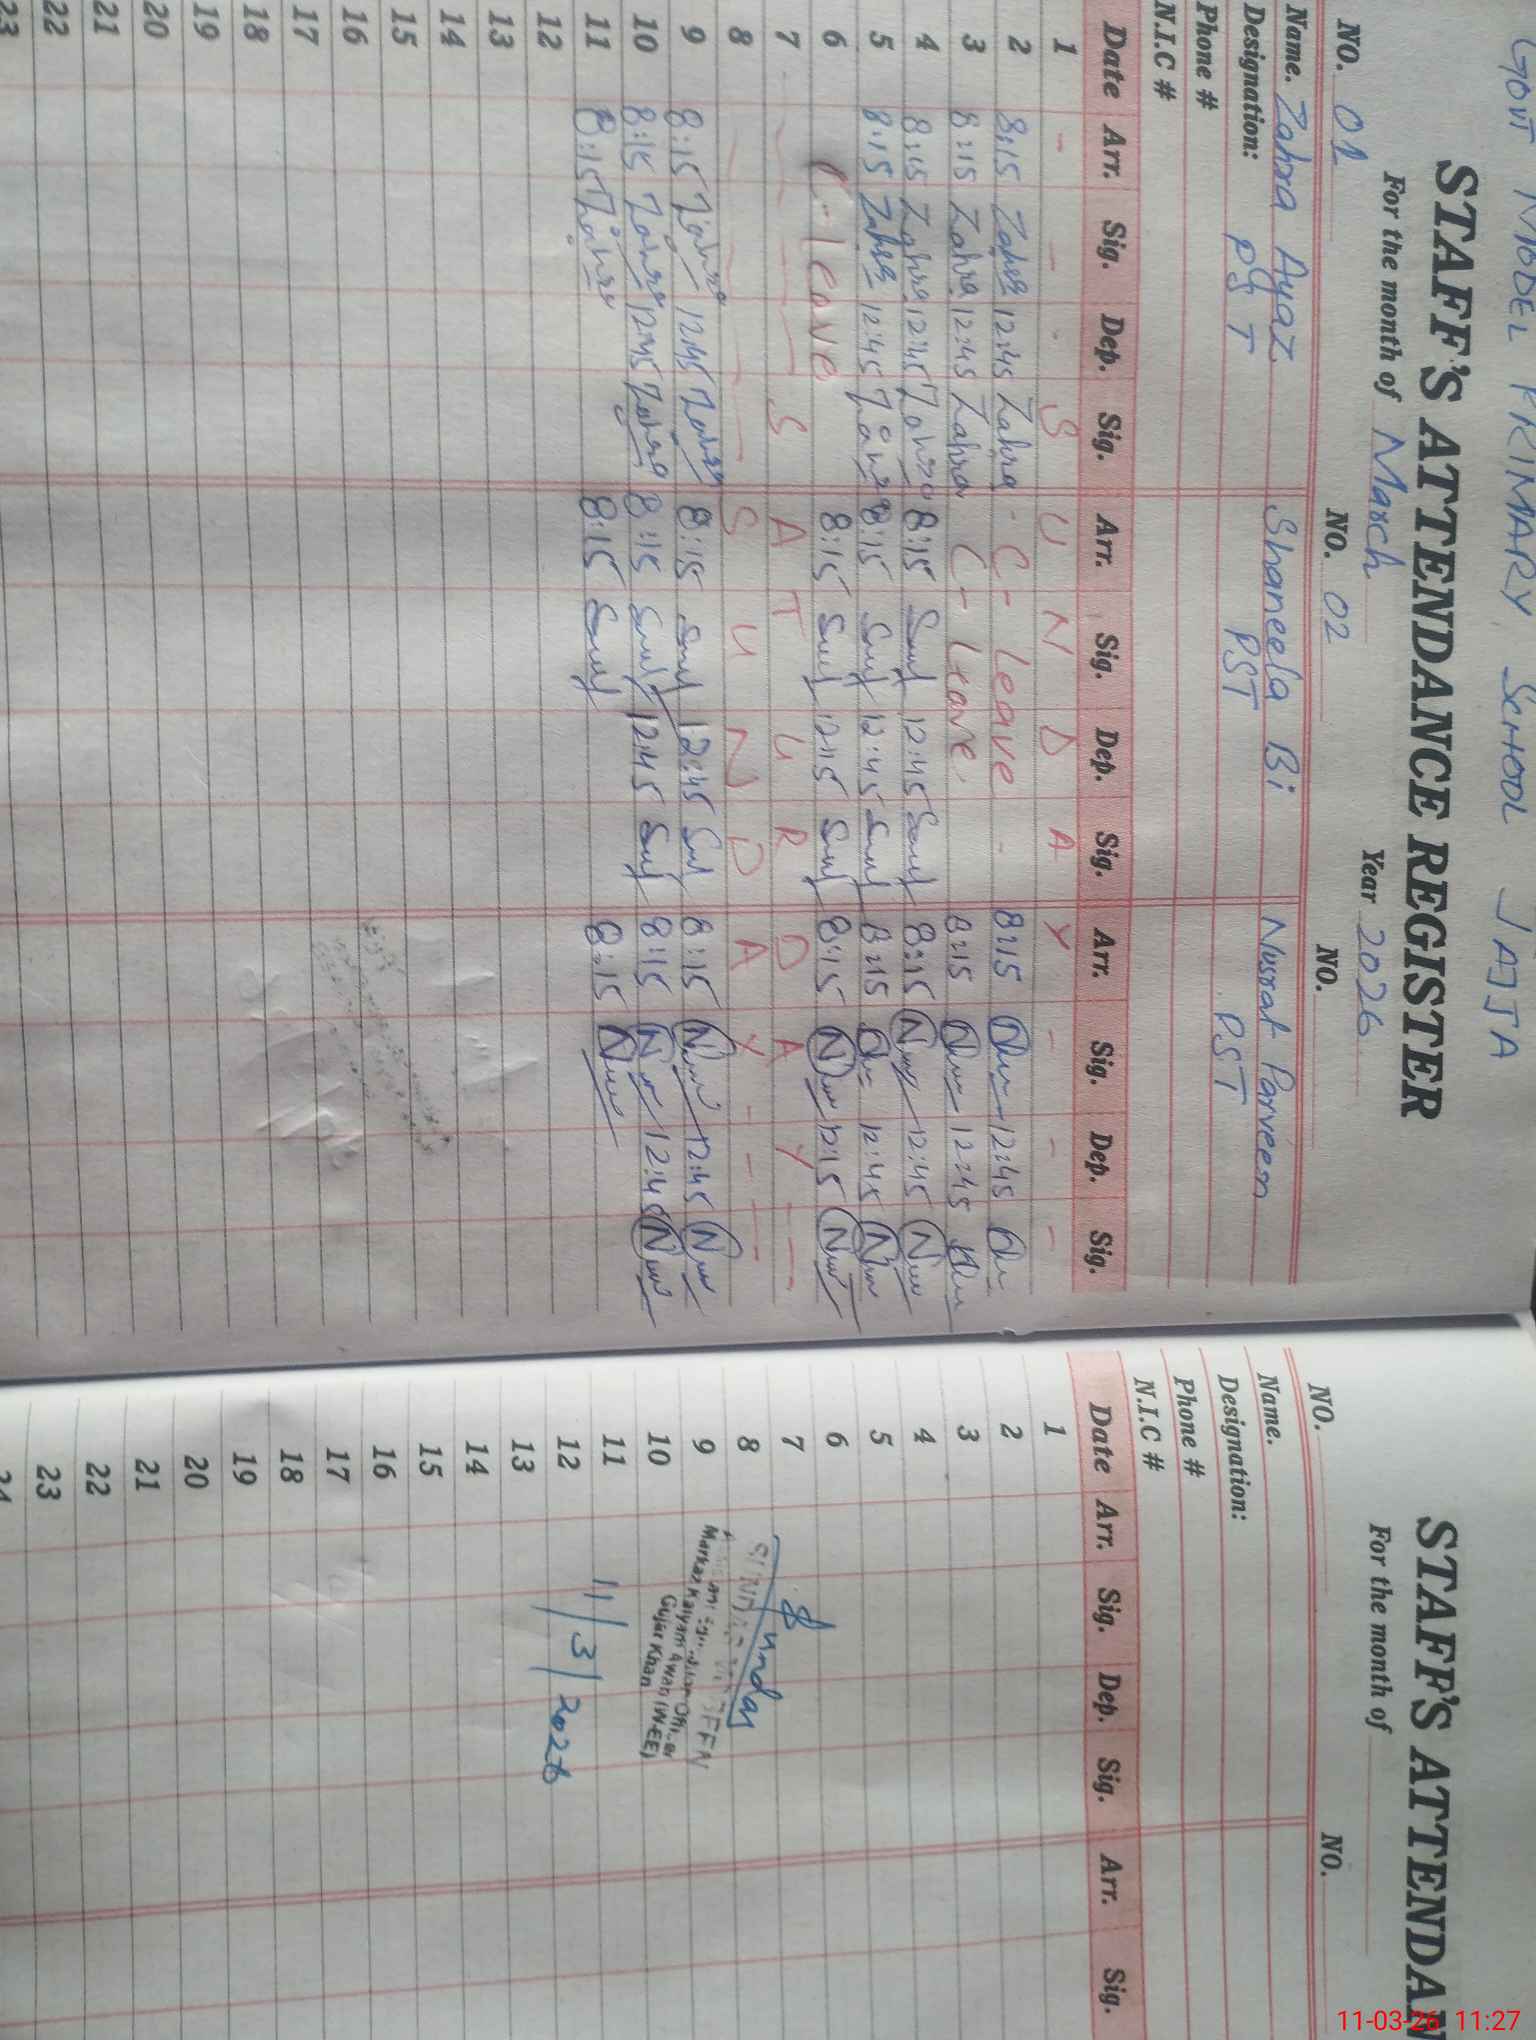 GOVT MODEL PRIMARY SCHOOL JAJJA
STAFF'S ATTENDANCE REGISTER
For the month of March Year 2026
NO. 01 NO. 02 NO.
Name. Zahra Ayaz Shaneela Bi Nusrat Parveen
Designation: PST PST PST
Phone #
N.I.C #
Date Arr. Sig. Dep. Sig. Arr. Sig. Dep. Sig. Arr. Sig. Dep. Sig.
1 - - - S U N D A Y - - -
2 8:15 Zahra 12:45 Zahra - C- Leave - 8:15 12:45
3 8:15 Zahra 12:45 Zahra C- Leave 8:15 12:45
4 8:15 Zahra 12:45 Zahra 8:15 12:45 8:15 12:45
5 8:15 Zahra 12:45 Zahra 8:15 12:45 8:15 12:45
6 C-leave 8:15 12:15 8:15 12:15
7 S A T U R D A Y
8 S U N D A Y
9 8:15 Zahra 12:45 Zahra 8:15 12:45 8:15 12:45
10 8:15 Zahra 12:45 Zahra 8:15 12:45 8:15 12:45
11 8:15 Zahra 8:15 8:15
12
13
14
15
16
17
18
19
20
21
22
23
STAFF'S ATTENDAN
For the month of
NO. NO.
Name.
Designation:
Phone #
N.I.C #
Date Arr. Sig. Dep. Sig. Arr. Sig.
1
2
3
4
5
6
7
8
9
10
11
12
13
14
15
16
17
18
19
20
21
22
23
24
Education Officer
Markaz Kalyam Awan (W-EE)
Gujar Khan
11/3/2026
11-03-26 11:27